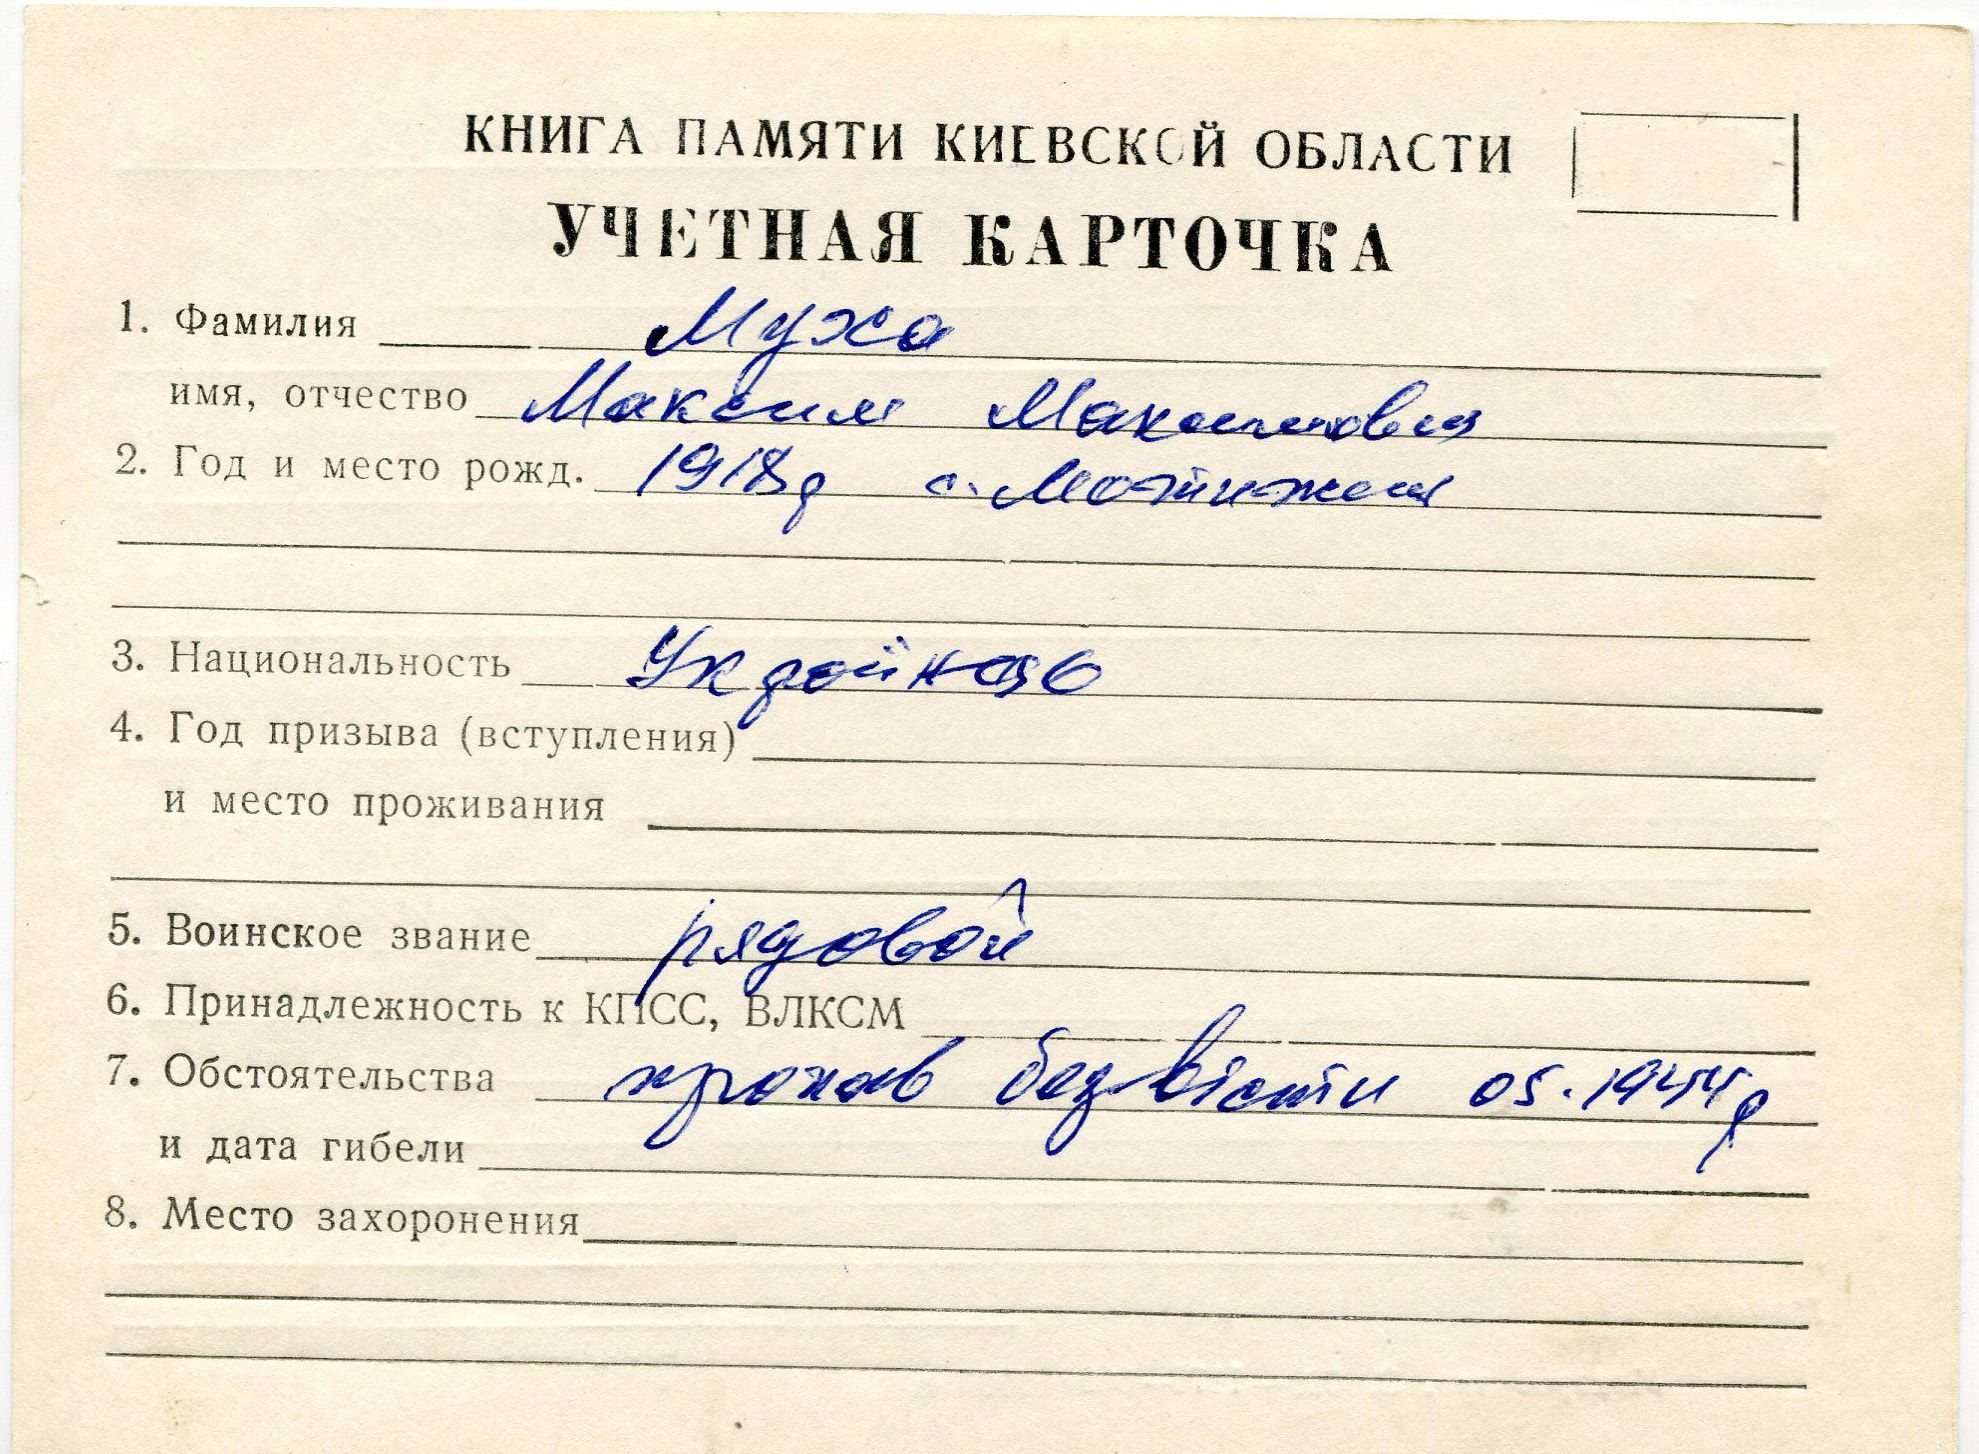 КНИГА ПАМЯТИ КИЕВСКОЙ ОБЛАСТИ
УЧЕТНАЯ КАРТОЧКА
1. Фамилия Муха
имя, отчество Максим Максимович
2. Год и место рожд. 1918р с. Мотижин
3. Национальность Українець
4. Год призыва (вступления)
и место проживания
5. Воинское звание рядовой
6. Принадлежность к КПСС, ВЛКСМ
7. Обстоятельства пропав безвісти 05.1944р
и дата гибели
8. Место захоронения